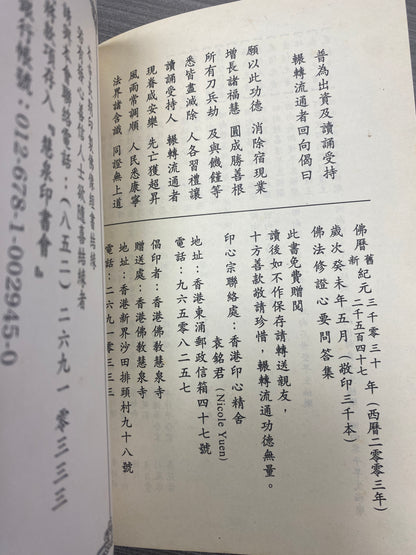 普為出資及讀誦受持
輾轉流通者回向偈曰
願以此功德 消除宿現業
增長諸福慧 圓成勝善根
所有刀兵劫 及與饑饉等
悉皆盡滅除 人各習禮讓
讀誦受持人 輾轉流通者
現眷咸安樂 先亡獲超昇
風雨常調順 人民悉康寧
法界諸含識 同證無上道
佛曆 舊紀元 三千零三十年 新 二千五百四十七 (西曆二零零三年)
歲次癸未年五月 (敬印三千本)
佛法修證心要問答集
此書免費贈閱
讀後如不作保存請轉送親友,
十方善款敬請珍惜,輾轉流通功德無量。
印心宗聯絡處:香港印心精舍
袁銘君 (Nicole Yuen)
地址:香港東涌郵政信箱四十七號
電話:九六五零八二五七
倡印者:香港佛教慧泉寺
贈送處:香港佛教慧泉寺
地址:香港新界沙田排頭村九十八號
電話:二六九一零三三三
本會長期印製佛經書結緣
若有發心善信人士欲隨喜結緣者
請與本會聯絡電話(八五二)二六九一 零三三三
款項存入『慧泉印書會』
銀行帳號:012-678-1-002945-0